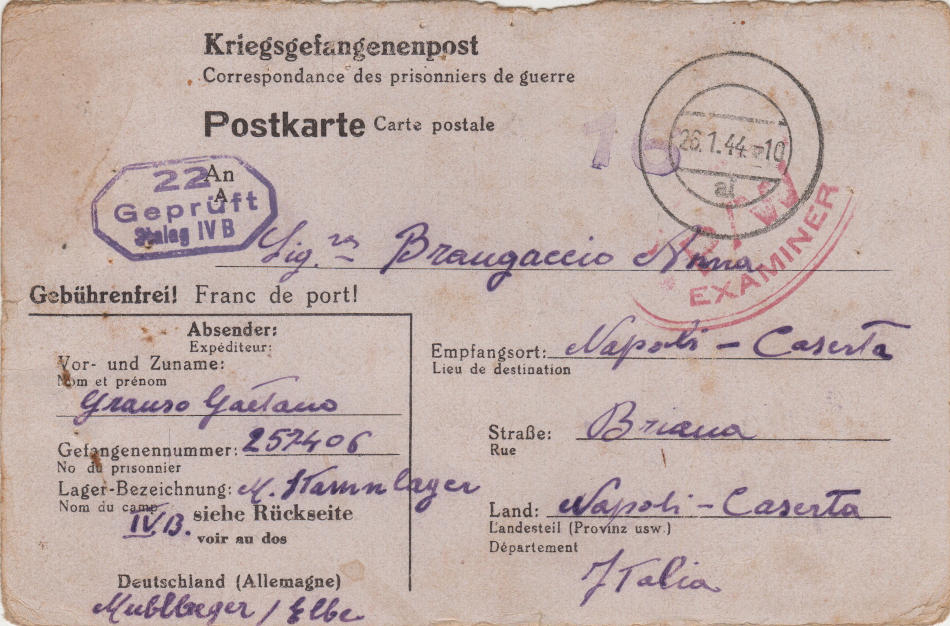 Kriegsgefangenenpost
Correspondance des prisonniers de guerre
Postkarte Carte postale
26.1.44.-10
af
16
22
Geprüft
Stalag IV B
An
A
EXAMINER
Sig.ra Brangaccio Anna
Gebührenfrei! Franc de port!
Absender:
Expéditeur:
Vor- und Zuname:
Nom et prénom
Grauso Gaetano
Gefangenennummer: 257406
No du prisonnier
Lager-Bezeichnung: M. Stammlager
Nom du camp
IV.B. siehe Rückseite
voir au dos
Deutschland (Allemagne)
Mühlberger / Elbe
Empfangsort: Napoli - Caserta
Lieu de destination
Straße: Briana
Rue
Land: Napoli - Caserta
Landesteil (Provinz usw.)
Département
Italia